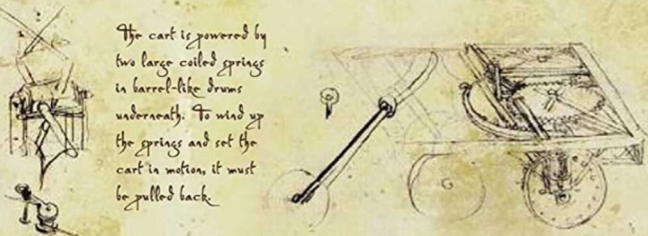 The cart is powered by
two large coiled springs
in barrel-like drums
underneath. To wind up
the springs and set the
cart in motion, it must
be pulled back.